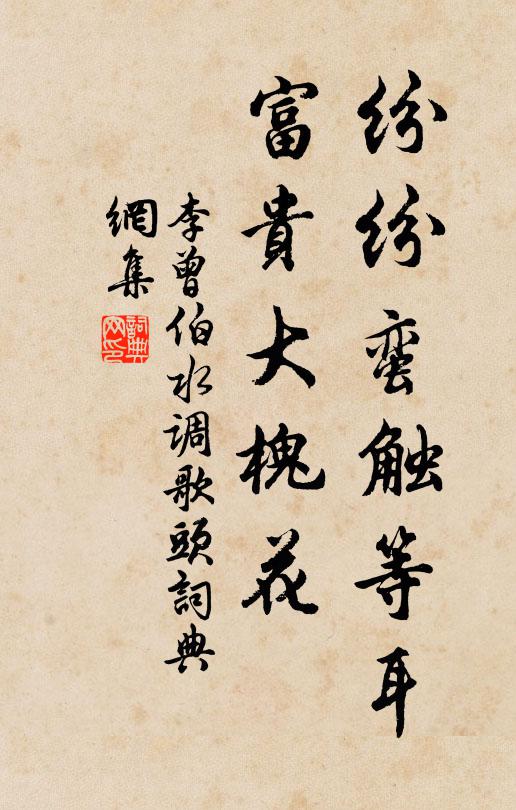 纷纷蛮触等耳
富貴大槐花
李曾伯水调歌頭詞典
網集
詞典
网印